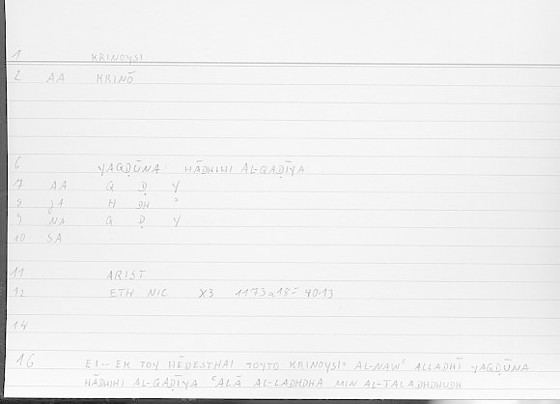 1 KRINOYSI
2 AA KRINŌ
6 YAQḌŪNA HĀDHIHI AL-QAḌĪYA
7 AA Q Ḍ Y
8 JA H DH
9 NA Q Ḍ Y
10 SA
11 ARIST
12 ETH NIC X3 1173a15- 40.13
14
16 EI-- EK TOY HĒDESTHAI TOYTO KRINOYSI: AL-NAWʿ ALLADHĪ YAQḌŪNA
HĀDHIHI AL-QAḌĪYA ʿALĀ AL-LADHDHA MIN AL-TALADHDHUDH